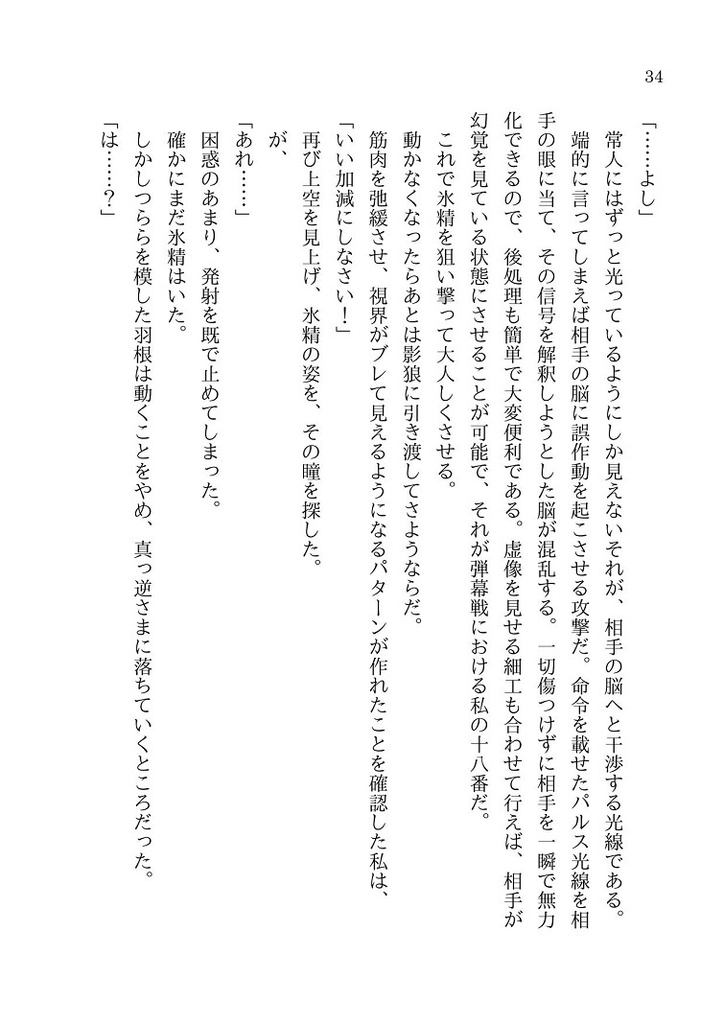 34
「……よし」
　常人にはずっと光っているようにしか見えないそれが、相手の脳へと干渉する光線である。
　端的に言ってしまえば相手の脳に誤作動を起こさせる攻撃だ。命令を載せたパルス光線を相
手の眼に当て、その信号を解釈しようとした脳が混乱する。一切傷つけずに相手を一瞬で無力
化できるので、後処理も簡単で大変便利である。虚像を見せる細工も合わせて行えば、相手が
幻覚を見ている状態にさせることが可能で、それが弾幕戦における私の十八番だ。
　これで氷精を狙い撃って大人しくさせる。
　動かなくなったらあとは影狼に引き渡してさようならだ。
　筋肉を弛緩させ、視界がブレて見えるようになるパターンが作れたことを確認した私は、
「いい加減にしなさい！」
　再び上空を見上げ、氷精の姿を、その瞳を探した。
　が、
「あれ……」
　困惑のあまり、発射を既で止めてしまった。
　確かにまだ氷精はいた。
　しかしつららを模した羽根は動くことをやめ、真っ逆さまに落ちていくところだった。
「は……？」